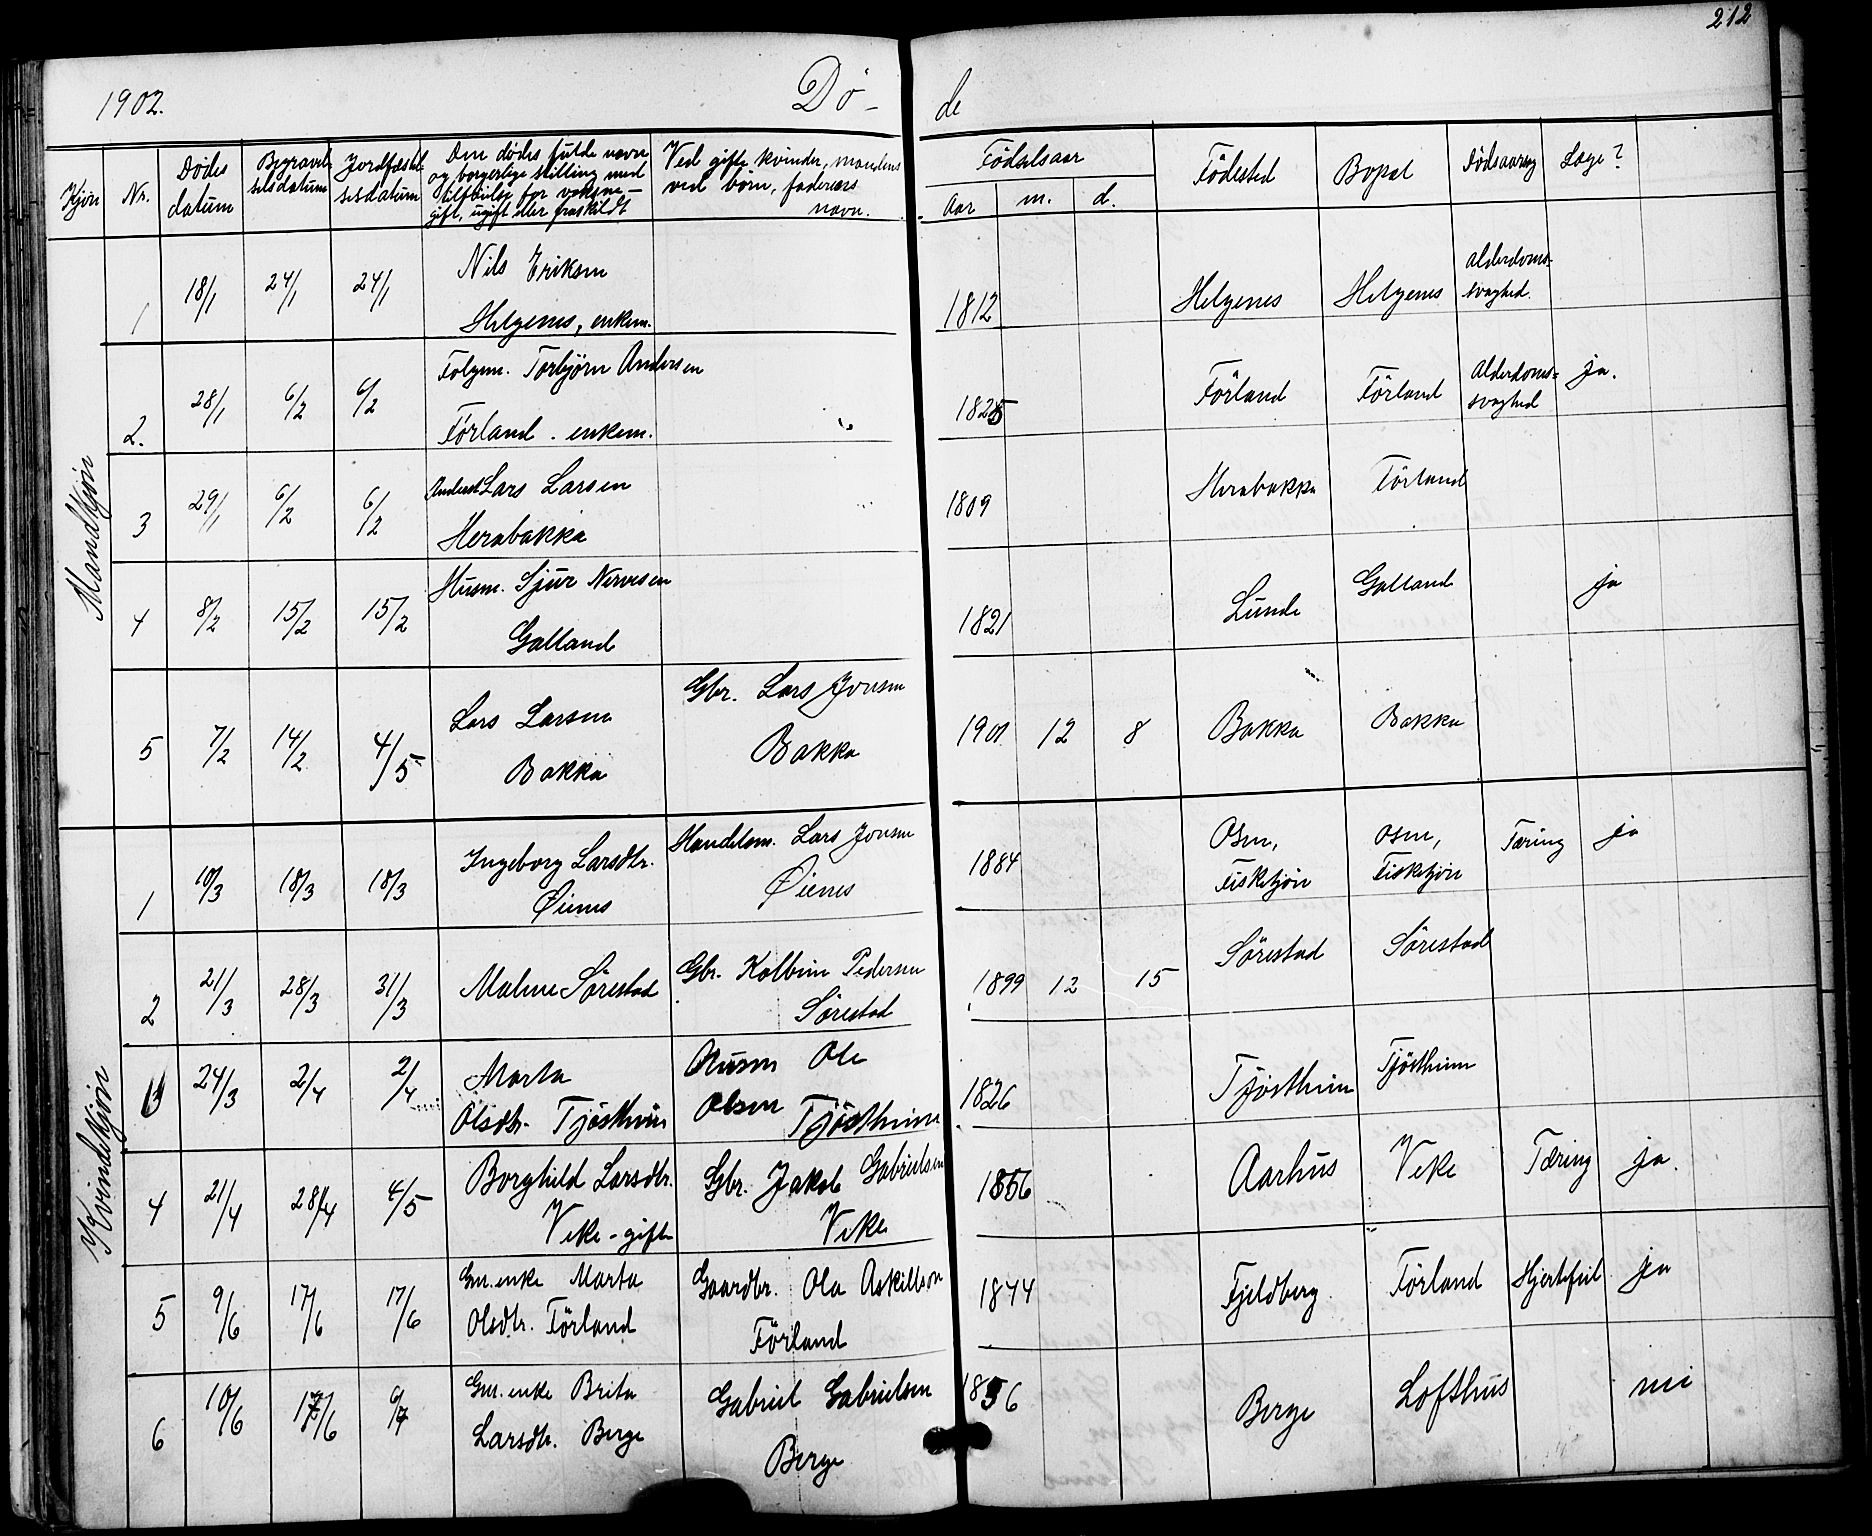 212
1902. Dø- de
Kjön Nr. Dødsdatum Begravelsesdatum Jordfæstelsesdatum Den dødes fulde navn og borgerlige stilling med tilföielse for voksne – gift, ugift eller fraskildt Ved gifte kvinder, mandens ved börn, faderens navn. Födselsaar Aar m. d. Födested Bopæl Dödsaarsag Læge?
Mandkjön
1 18/1 24/1 24/1 Nils Eriksen Helgenes, enkem. 1812 Helgenes Helgenes Alderdomssvaghed.
2. 28/1 6/2 6/2 Folgem. Torbjörn Andersen Förland. enkem. 1825 Förland Förland Alderdoms=svaghed ja.
3 29/1 6/2 6/2 Lars Larsen Herabakka 1809 Herabakka Förland
4 8/2 15/2 15/2 Husm. Sjur Galland 1821 Lunde Galland ja
5 7/2 14/2 4/5 Lars Larsen Bakka Gbr. Lars Jonsen Bakka 1901 12 8 Bakka Bakka
Kvindekjön
1 10/3 18/3 18/3 Ingeborg Larsdtr. Øienes Handelsm. Lars Jonsen Øienes 1884 Osen, Fisketjön Osen, Fisketjön Tæring ja
2 21/3 28/3 31/3 Malene Sörestad Gbr. Kolbein Pedersen Sörestad 1899 12 15 Sörestad Sörestad
3 24/3 2/4 2/4 Marta Olsdtr. Tjöstheim Ole Olsen Tjöstheim 1826 Tjöstheim Tjöstheim
4 21/4 28/4 4/5 Borghild Larsdtr. Veke - gift Gbr. Jakob Gabrielsen Veke 1856 Aarhus Veke Tæring ja.
5 9/6 17/6 17/6 Gm. enke Marta Olsdtr. Förland Gaardbr. Ola Askildson Förland 1844 Fjeldberg Förland Hjertefeil ja
6 10/6 17/6 6/7 Gm. enke Brita Larsdtr. Berge Gabriel Gabrielsen Berge 1856 Berge Lofthus nei